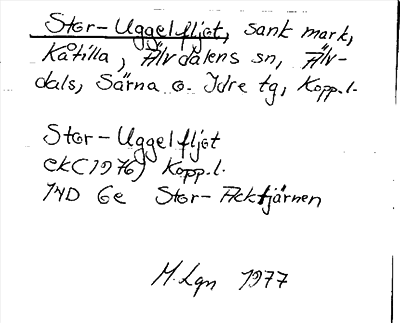 Stor-Uggelfljot, sank mark,
Kåtilla, Älvdalens sn, Älv-
dals, Särna o. Idre tg, Kopp.l.
Stor-Uggelfljot
ekC(1976) Kopp.l.
14D 6e Stor-Acktjärnen
M.Lgn 1977